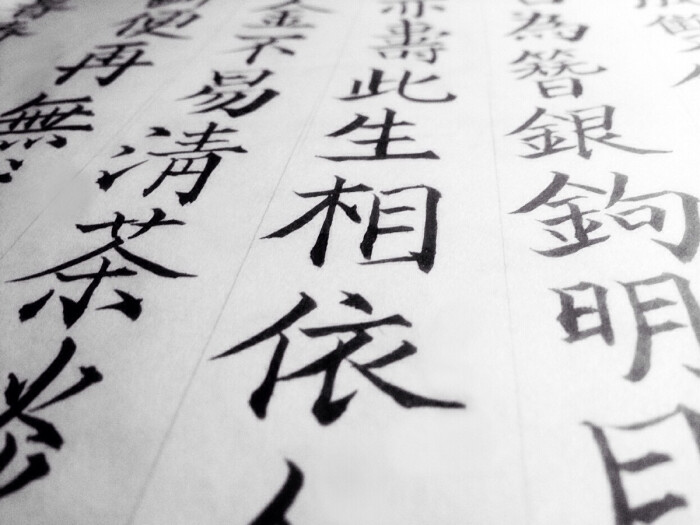 為簪銀鉤明
亦壽此生相依
金不易清茶
便再無